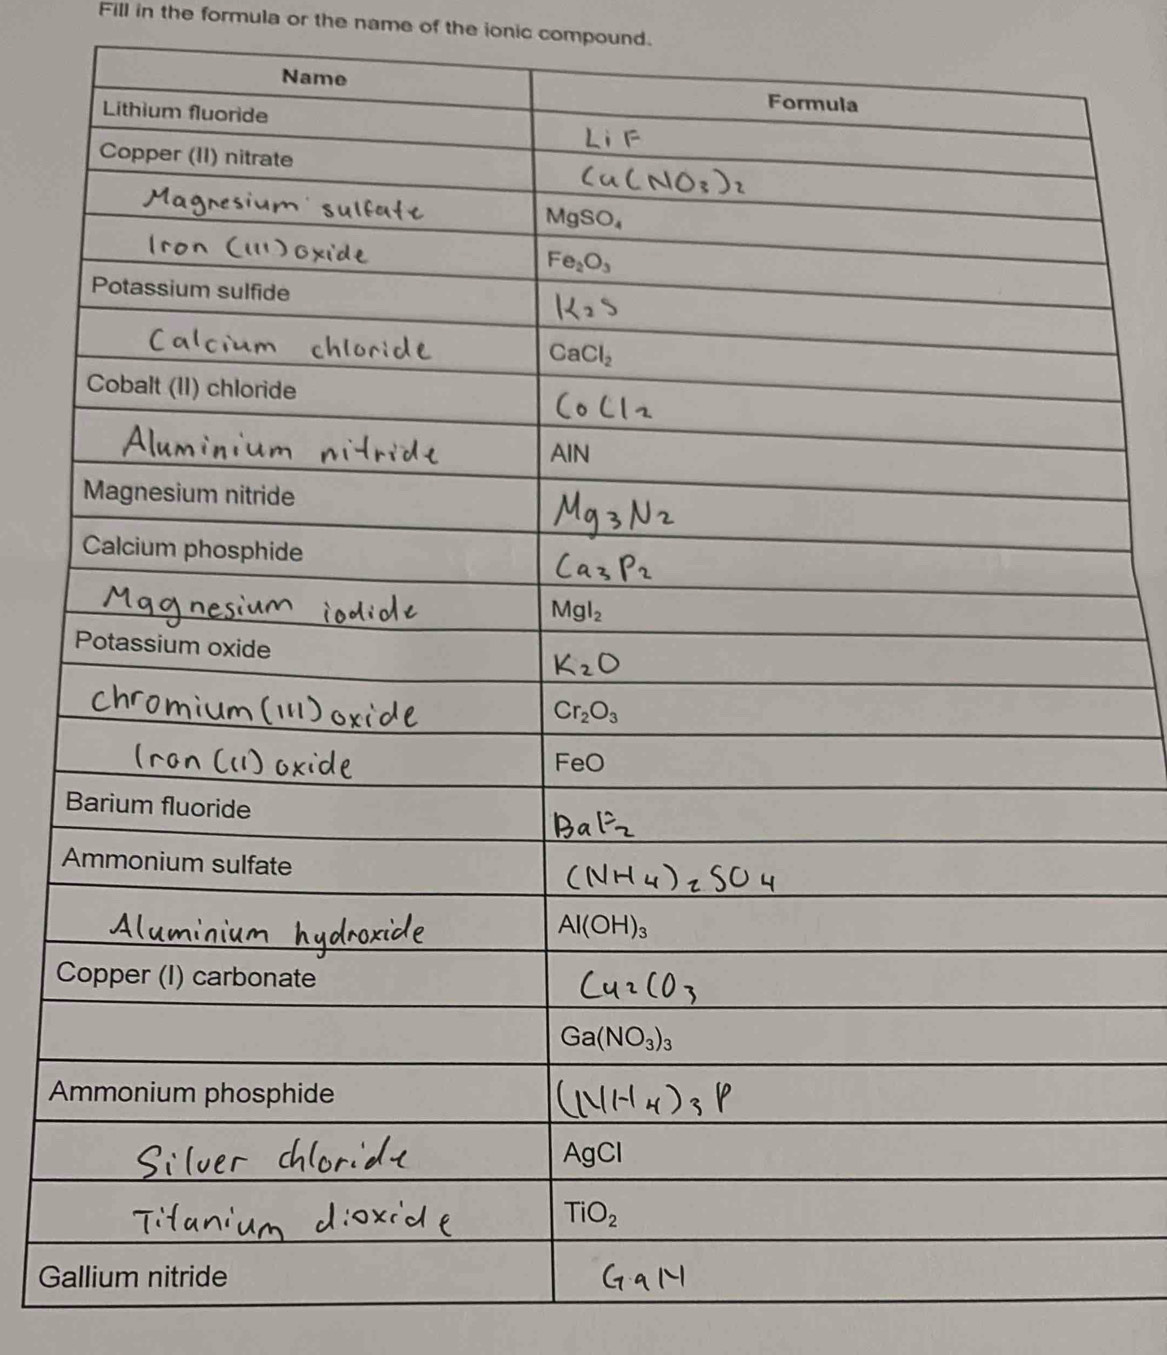 Fill in the formula or the name of the ionic compound.
Name Formula
Lithium fluoride LiF
Copper (II) nitrate Cu(NO₃)₂
Magnesium sulfate MgSO₄
Iron (III) oxide Fe₂O₃
Potassium sulfide K₂S
Calcium chloride CaCl₂
Cobalt (II) chloride CoCl₂
Aluminium nitride AlN
Magnesium nitride Mg₃N₂
Calcium phosphide Ca₃P₂
Magnesium iodide MgI₂
Potassium oxide K₂O
Chromium (III) oxide Cr₂O₃
Iron (II) oxide FeO
Barium fluoride BaF₂
Ammonium sulfate (NH₄)₂SO₄
Aluminium hydroxide Al(OH)₃
Copper (I) carbonate Cu₂CO₃
Ga(NO₃)₃
Ammonium phosphide (NH₄)₃P
Silver chloride AgCl
Titanium dioxide TiO₂
Gallium nitride GaN